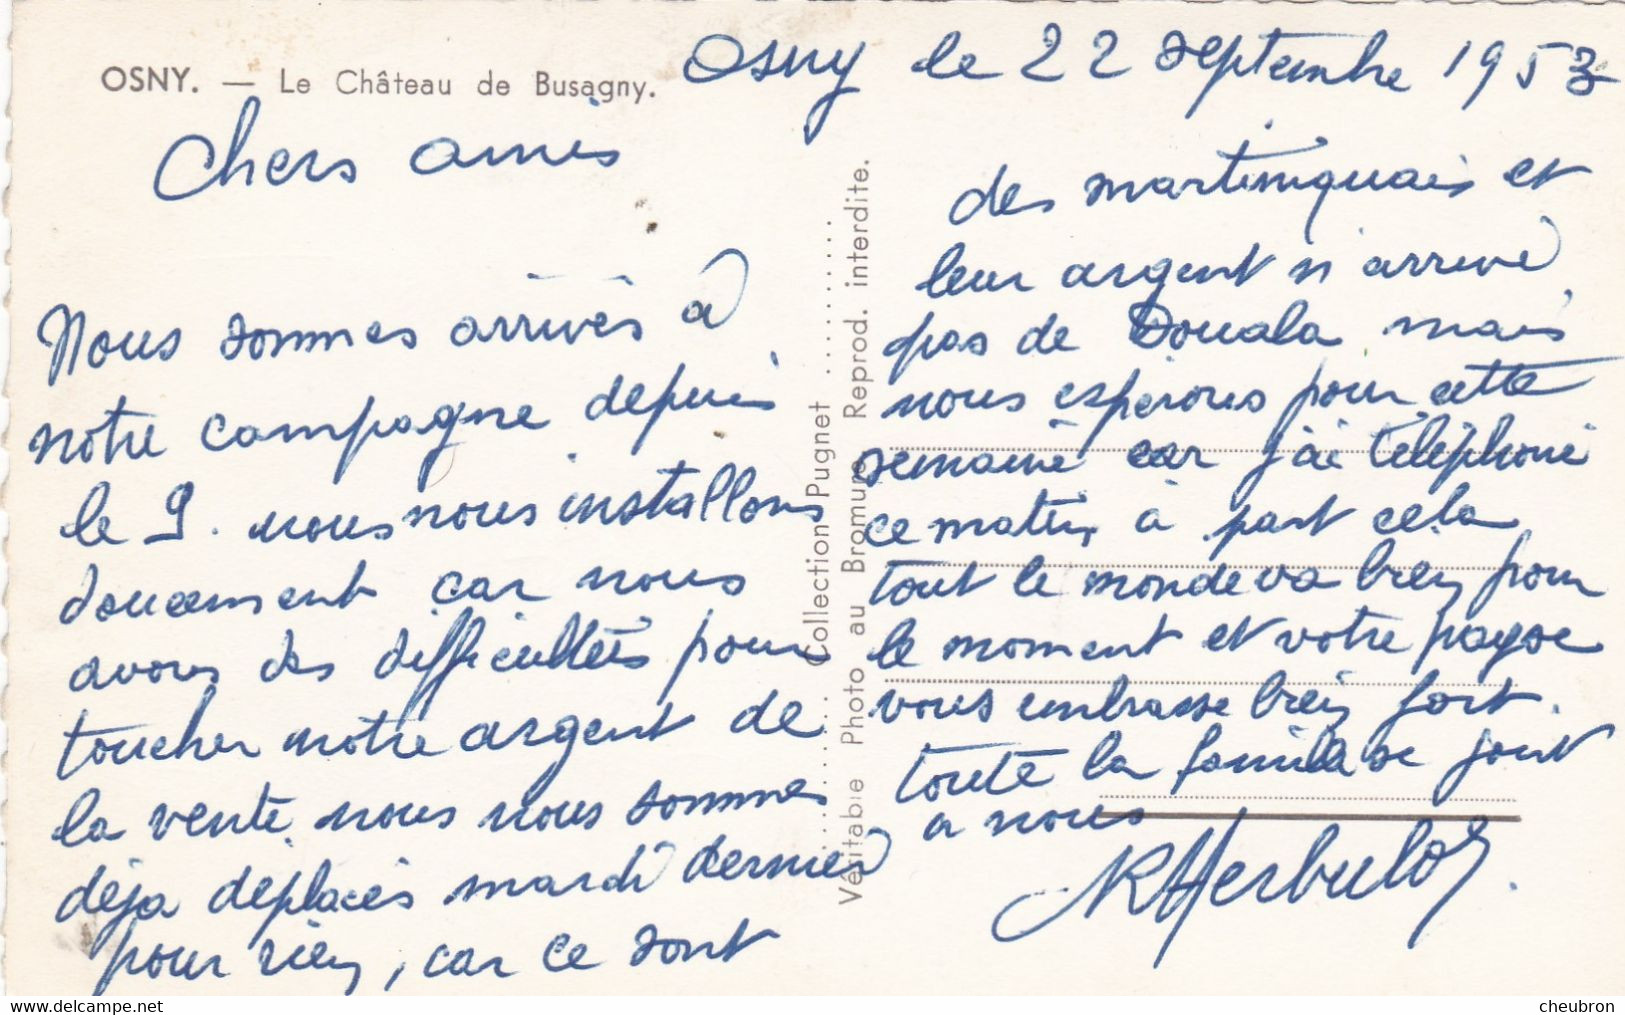 OSNY. — Le Château de Busagny.
Osny le 22 septembre 1953
Chers amis
Nous sommes arrivés à
notre campagne depuis
le 9. nous nous installons
doucement car nous
avons des difficultées pour
toucher notre argent de
la vente, nous nous sommes
déja déplacés mardi dernier
pour rien, car ce sont
des martiniquais et
leur argent n'arrive
pas de Douala mais
nous espérons pour cette
semaine car j'ai téléphoné
ce matin à part cela
tout le monde va bien pour
le moment et votre payse
vous embrasse bien fort.
toute la famille se joint
a nous
Herbulot
Collection Pugnet
Véritable Photo au Bromure Reprod. interdite.
cheubron